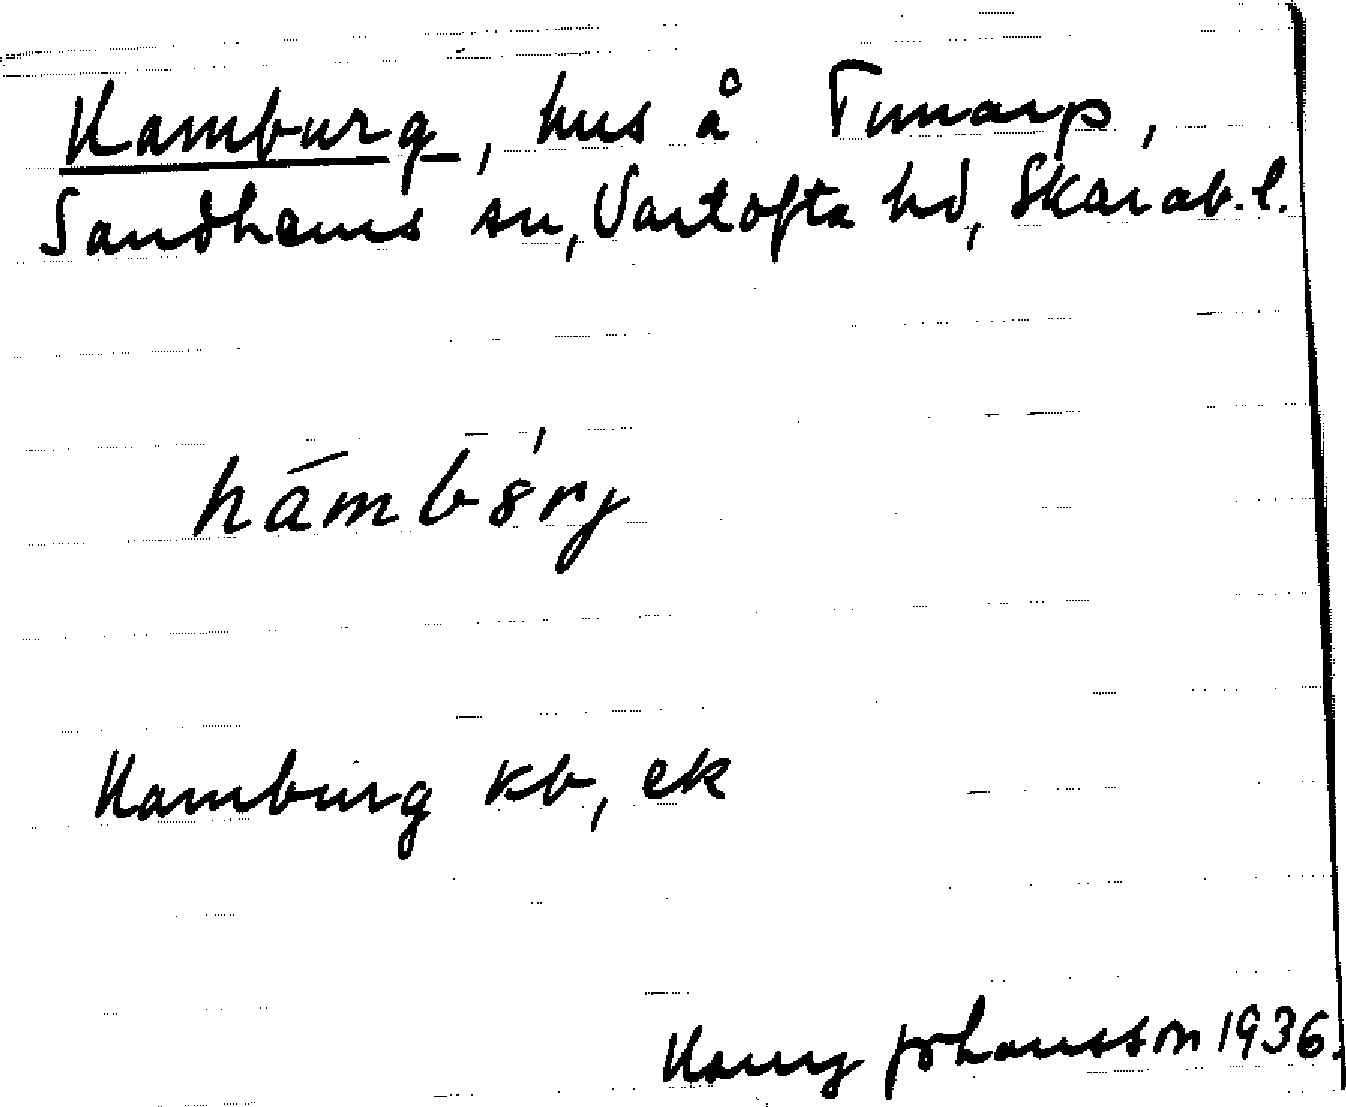 Hamburg, hus å Tunarp,
Sandhems sn, Vartofta hd, Skarab. l.
hámbórj
Hamburg kb, ek
Harry Johansson 1936.